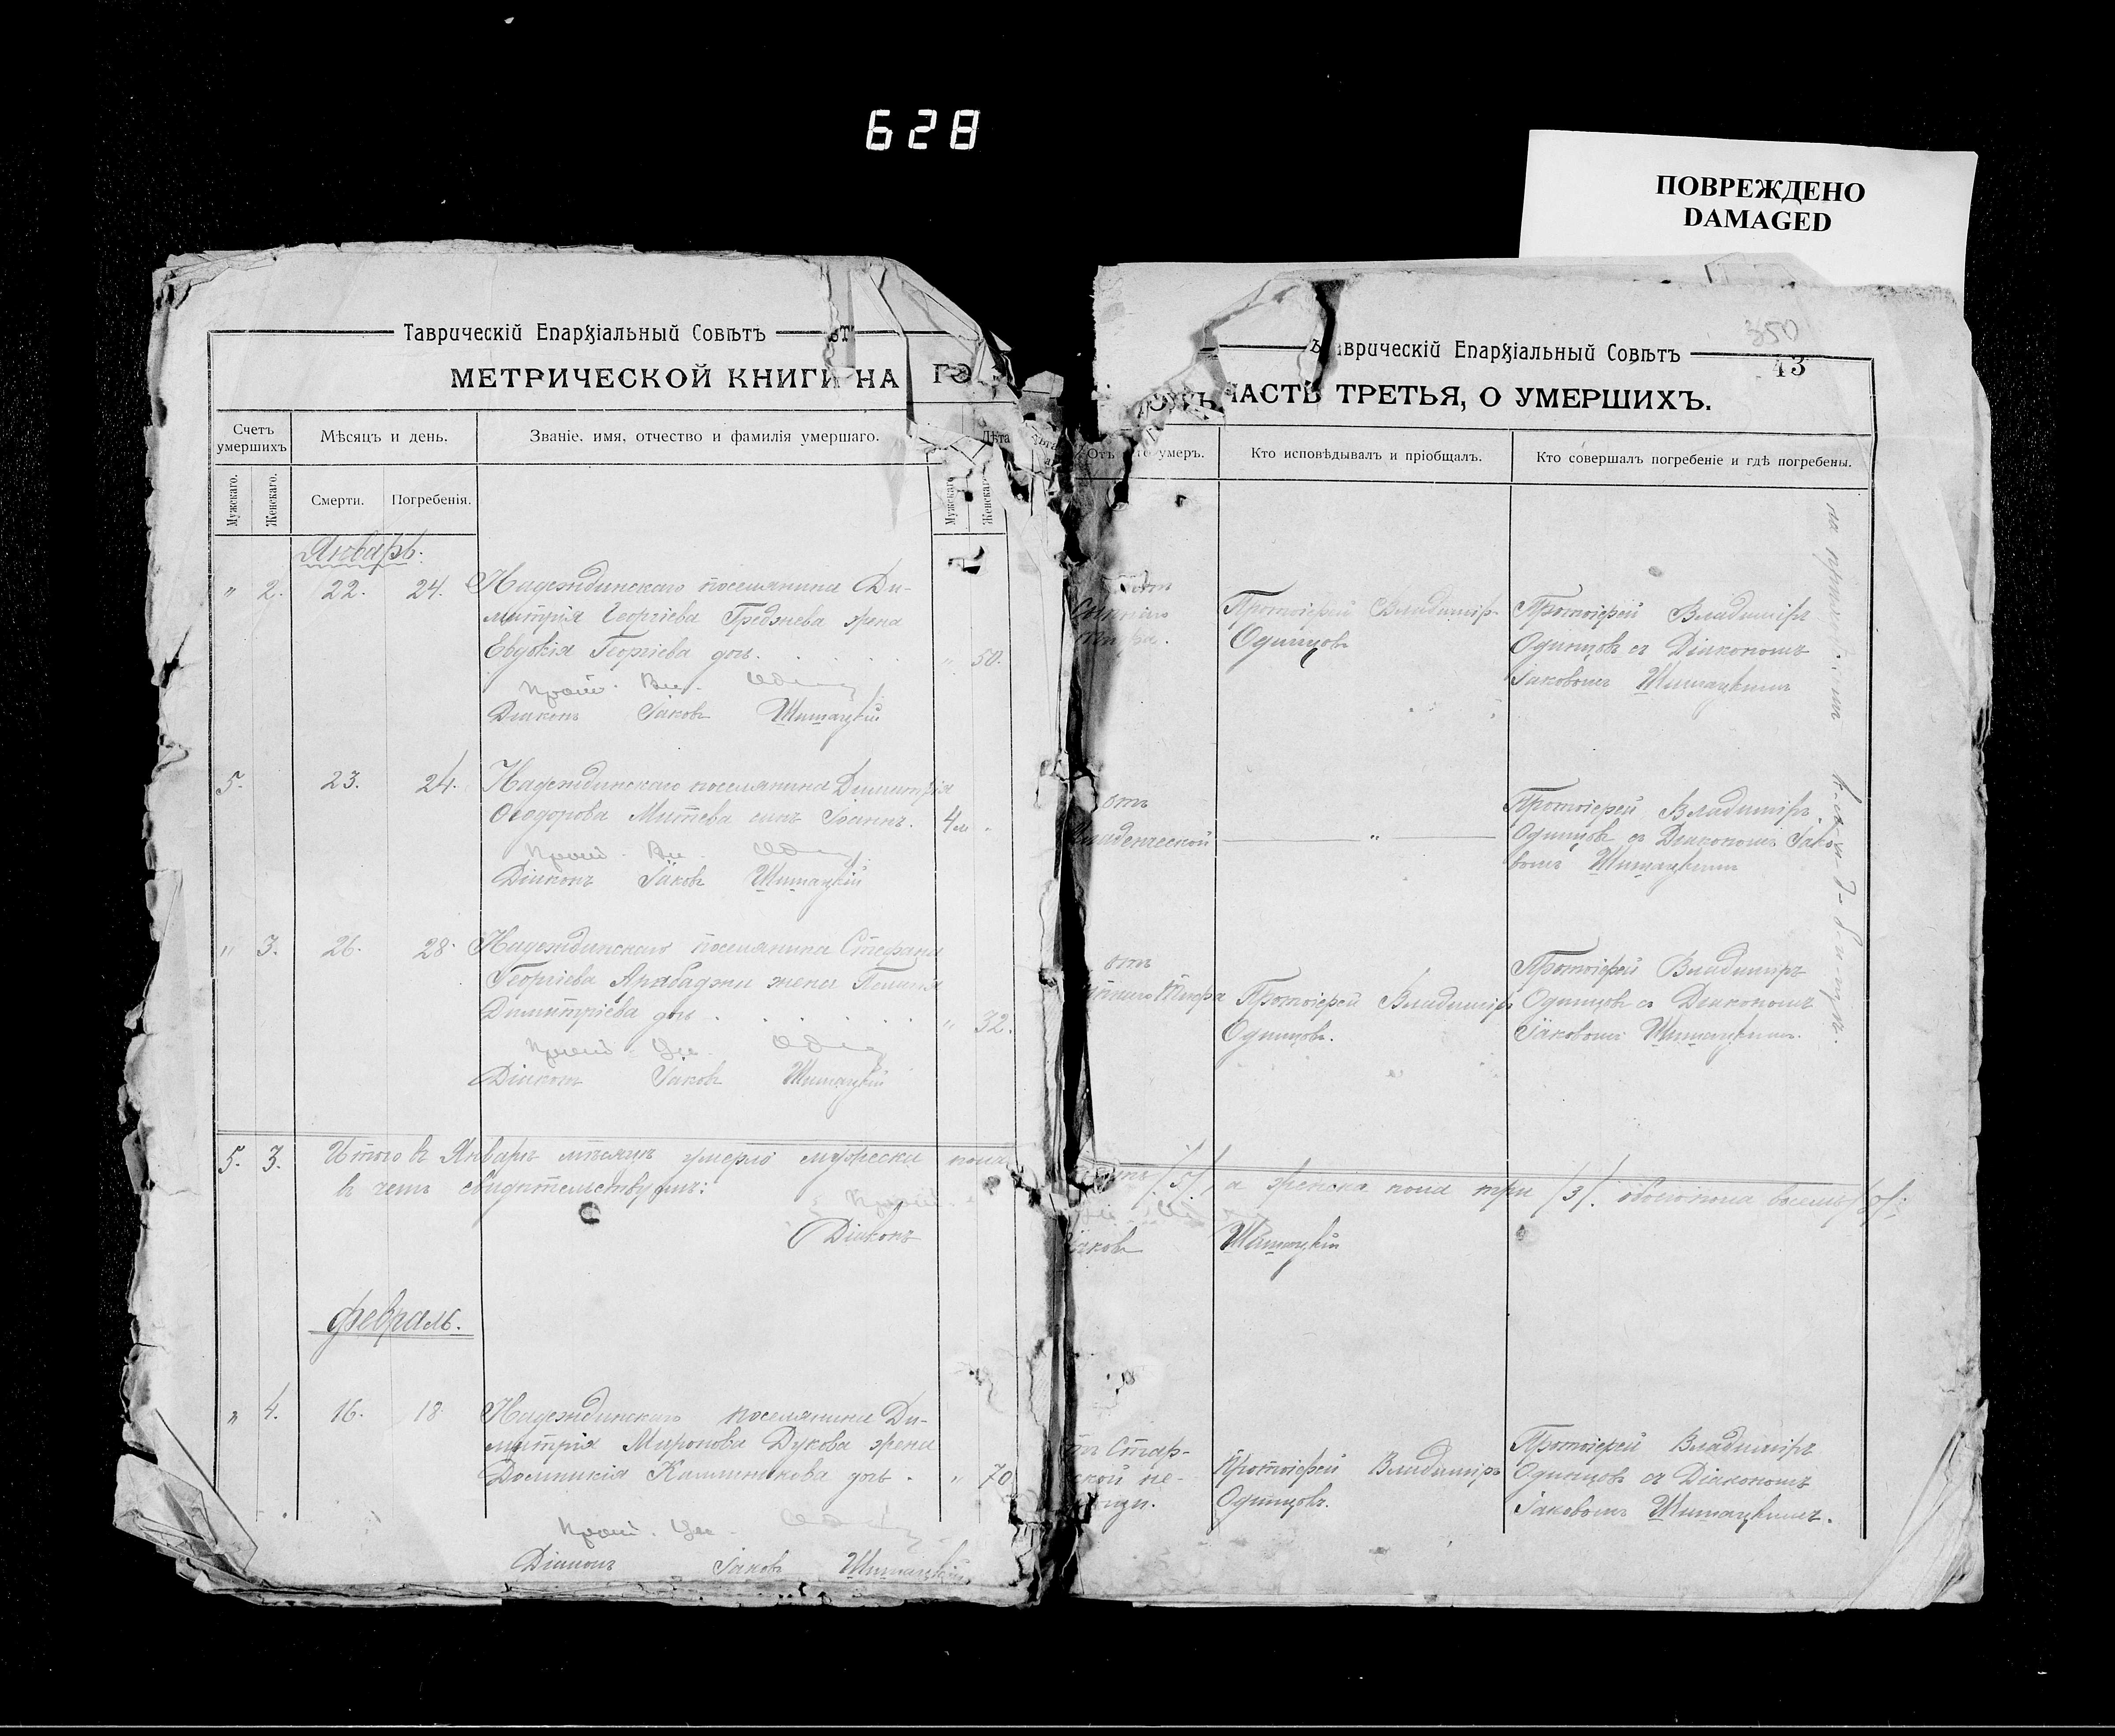 628
ПОВРЕЖДЕНО
DAMAGED
Таврическій Епархіальный Совѣтъ
МЕТРИЧЕСКОЙ КНИГИ НА ГО
Счетъ умершихъ
Мѣсяцъ и день.
Званіе, имя, отчество и фамилія умершаго.
Лѣта
Мужскаго.
Женскаго.
Смерти.
Погребенія.
Мужскаго
Женскаго
Январь.
" 2. 22. 24. Надеждинскаго поселянина Ди-
митрія Георгіева Греджева жена
Евдокія Георгіева дочь. " 50.
Діаконъ Іаковъ Шишацкій
5. 23. 24. Надеждинскаго поселянина Димитрія
Ѳеодорова Митева сынъ Іоаннъ. 4м "
Діаконъ Іаковъ Шишацкій
" 3. 26. 28. Надеждинскаго поселянина Стефана
Георгіева Арабаджи жена
Димитріева дочь " 32.
Діаконъ Іаковъ Шишацкій
5. 3. Итого въ Январѣ мѣсяцѣ умерло мужеска пола
въ чемъ свидѣтельствуемъ:
Діаконъ
Февраль.
" 4. 16. 18. Надеждинскаго поселянина Ди-
митрія Миронова Дукова жена
Домникія Каллиникова дочь. " 70
Діаконъ Іаковъ Шишацкій
350
Таврическій Епархіальный Совѣтъ
43
ЧАСТЬ ТРЕТЬЯ, О УМЕРШИХЪ.
Отъ го умеръ.
Кто исповѣдывалъ и пріобщалъ.
Кто совершалъ погребеніе и гдѣ погребены.
отъ
Протоіерей Владиміръ
Одинцовъ
Протоіерей Владиміръ
Одинцовъ съ Діакономъ
Іаковомъ Шишацкимъ
отъ
младенческой
"
Протоіерей Владиміръ
Одинцовъ съ Діакономъ Іако-
вомъ Шишацкимъ
отъ
тифа
Протоіерей Владиміръ
Одинцовъ.
Протоіерей Владиміръ
Одинцовъ съ Діакономъ
Іаковомъ Шишацкимъ.
/5/, а женска пола три /3/. обоего пола восемь /8/:
Іаковъ Шишацкій
отъ Стар-
ческой не-
мощи.
Протоіерей Владиміръ
Одинцовъ.
Протоіерей Владиміръ
Одинцовъ съ Діакономъ
Іаковомъ Шишацкимъ.